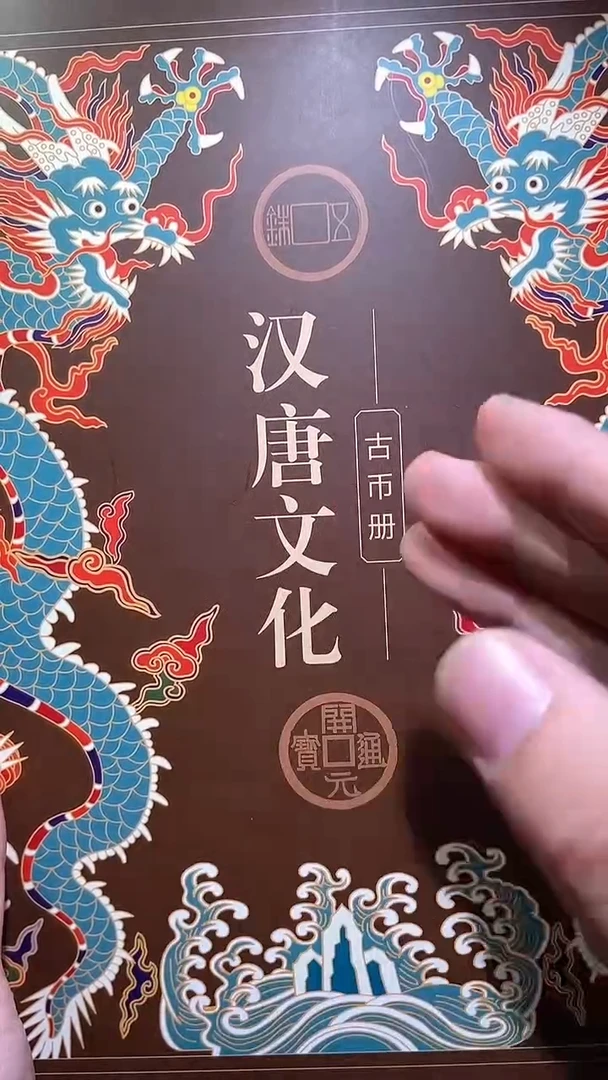 五銖
汉唐文化
古币册
開元通寶